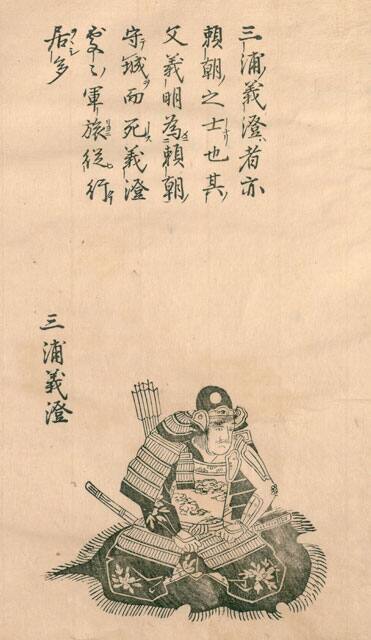 三浦義澄者亦
頼朝之士也其
父義明為頼朝
守城而死義澄
處〻軍旅従行
居多
三浦義澄